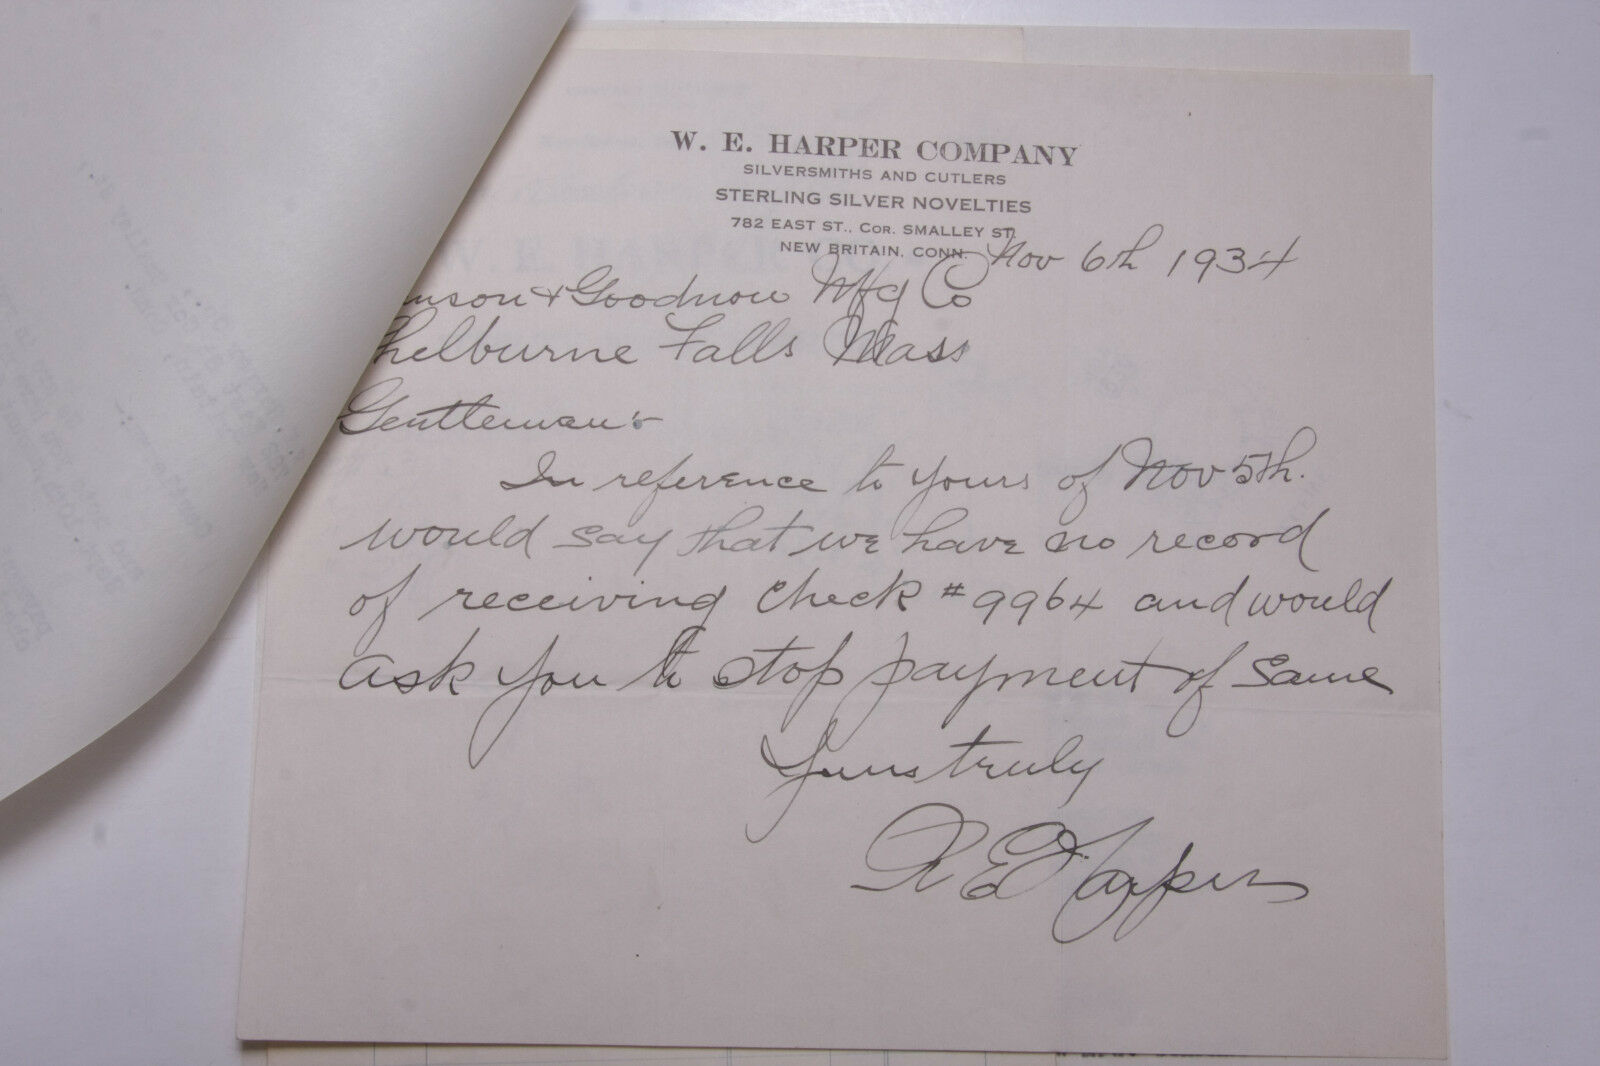 W. E. HARPER COMPANY
SILVERSMITHS AND CUTLERS
STERLING SILVER NOVELTIES
782 EAST ST., COR. SMALLEY ST.
NEW BRITAIN, CONN.
Nov 6th 1934
nson & Goodnow Mfg Co
Shelburne Falls Mass
Gentleman:-
In reference to yours of Nov 5th.
would say that we have no record
of receiving check #9964 and would
ask you to stop payment of same
Yours truly
Harper